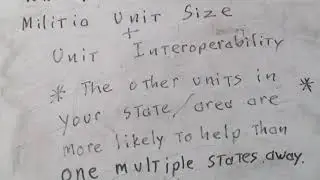 Militia Unit Size
+
Unit Interoperability
* The other units in *
your state/area are
more likely to help than
one multiple states away.